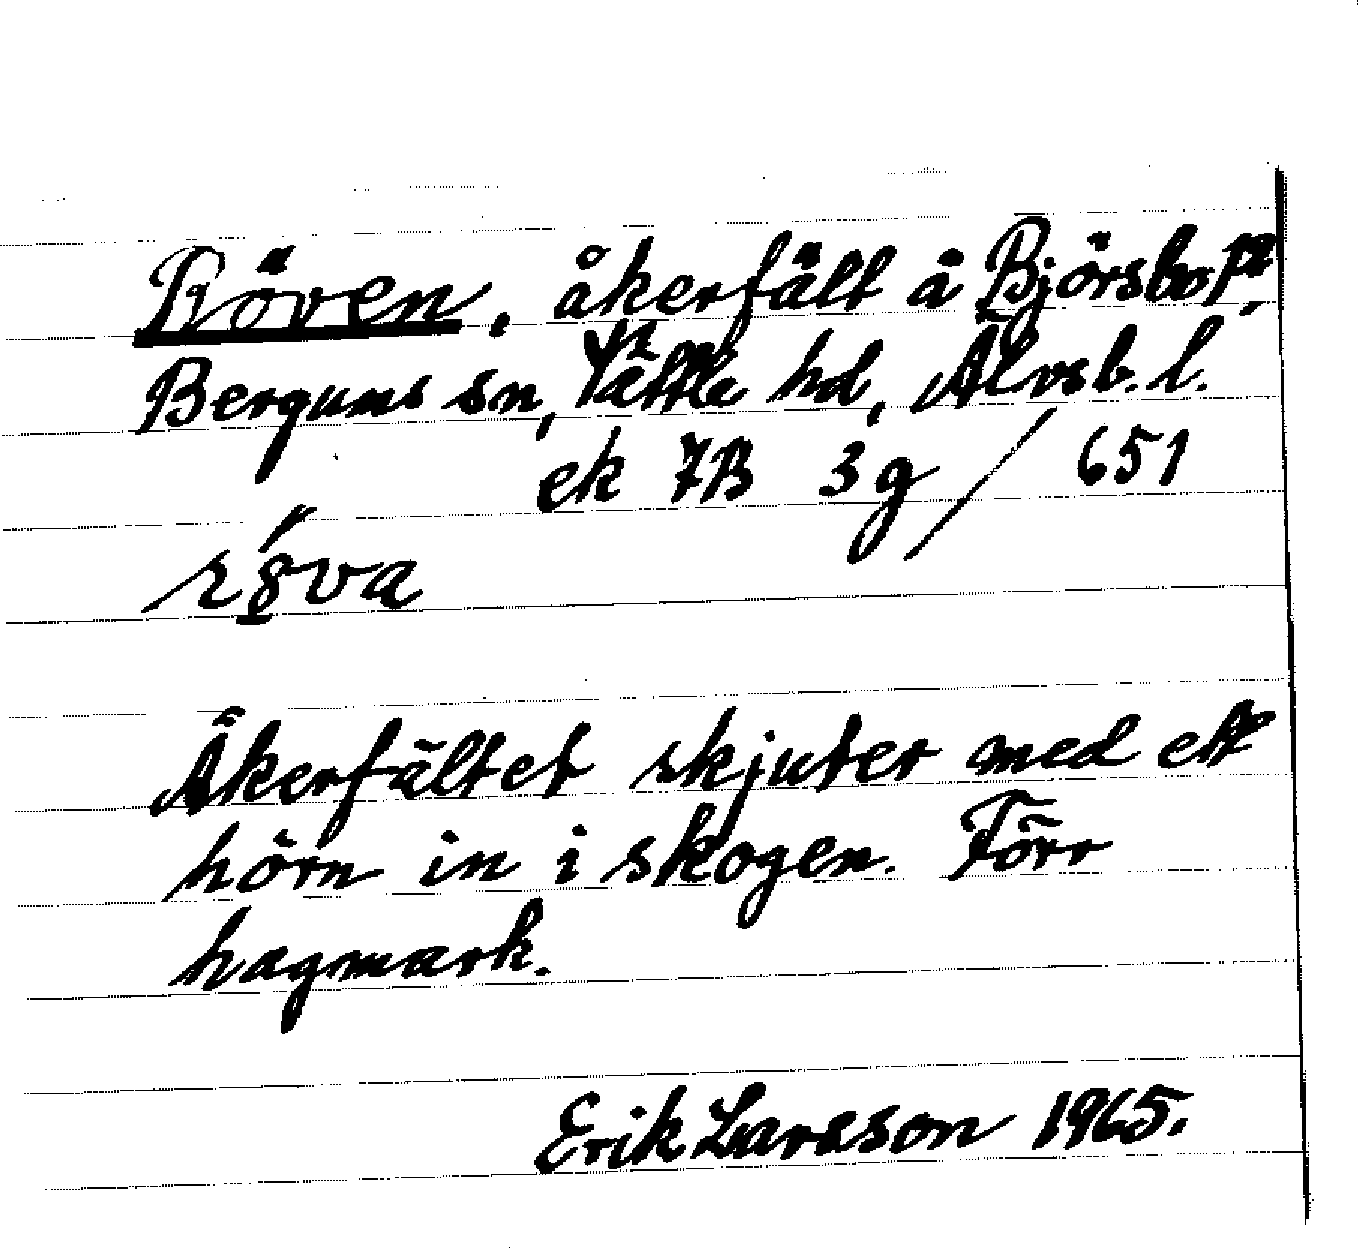 Röven, åkerfält å Björsbo,
Bergums sn, Vättle hd, Älvsb. l.
ek 7B 3g / 651
Åkerfältet skjuter med ett
hörn in i skogen. Förr
hagmark.
Erik Larsson 1965.